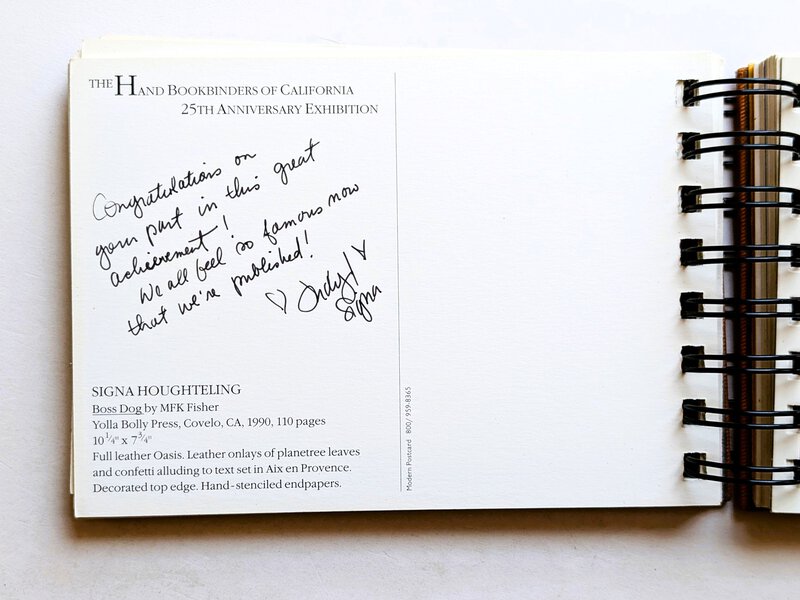 THE HAND BOOKBINDERS OF CALIFORNIA
25TH ANNIVERSARY EXHIBITION
Congratulations on
your part in this great
achievement!
We all feel so famous now
that we're published!
♡ Judy & ♡
Signa
SIGNA HOUGHTELING
Boss Dog by MFK Fisher
Yolla Bolly Press, Covelo, CA, 1990, 110 pages
10 1/4" x 7 3/4"
Full leather Oasis. Leather onlays of planetree leaves
and confetti alluding to text set in Aix en Provence.
Decorated top edge. Hand-stenciled endpapers.
Modern Postcard 800/ 959-8365